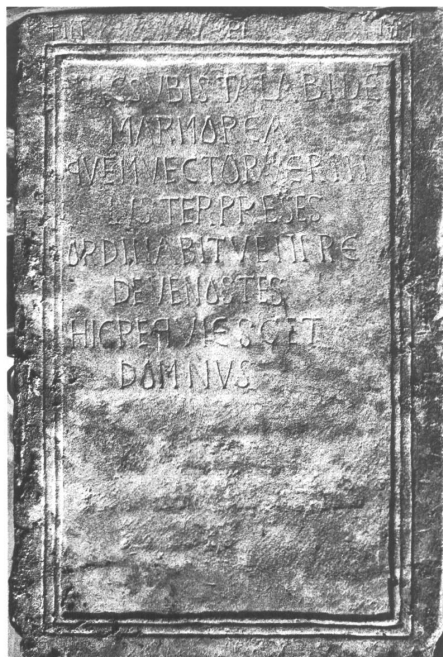 HIC SVB ISTA LABIDE
MARMOREA
QVEM VECTOR VER IN
LVSTER PRESES
ORDINABIT VENIRE
DE VENOSTES
HIC REQVIESCET
DOMNVS